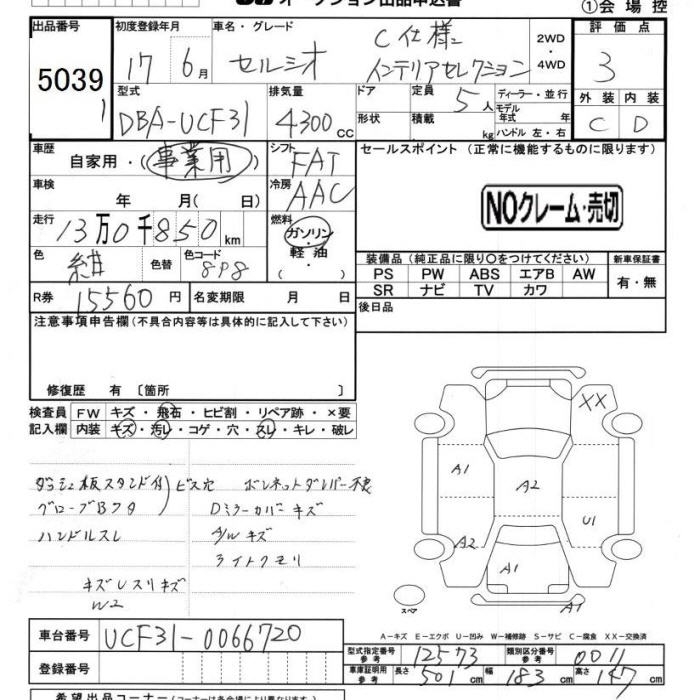 オークション出品申込書
①会場控
出品番号 初度登録年月 車名・グレード 評価点
5039 17年 6月 セルシオ C仕様 インテリアセレクション 2WD・4WD 3
型式 排気量 ドア 定員 5人 ディーラー・並行 外装 内装
DBA-UCF31 4300cc 形状 積載 kg モデル年式 年 ハンドル 左・右 C D
車歴 自家用・(事業用) シフト FAT セールスポイント (正常に機能するものに限ります)
車検 年 月(日) 冷房 AAC
NOクレーム・売切
走行 13万0千850km 燃料 ガソリン・軽油・( )
色 紺 色替 色コード 8P8
装備品 (純正品に限り○をつけてください) 新車保証書
PS PW ABS エアB AW 有・無
SR ナビ TV カワ
R券 15560円 名変期限 月 日 後日品
注意事項申告欄 (不具合内容等は具体的に記入して下さい)
修復歴 有 〔箇所 〕
検査員 FW キズ・飛石・ヒビ割・リペア跡・×要
記入欄 内装 キズ・汚レ・コゲ・穴・スレ・キレ・破レ
ダッシュ板スタンド付 ビス穴 ボンネットダンパー不良
グローブBフタ Dミラーカバーキズ
ハンドルスレ A/Wキズ
ライトクモリ
キズUスリキズ
W2
XX
A1
A2
U1
A2
A1
A1
スペア
A-キズ E-エクボ U-凹み W-補修跡 S-サビ C-腐食 XX-交換済
車台番号 UCF31-0066720
登録番号
型式指定番号 参考 12573 類別区分番号 参考 0011
車庫証明用 参考 長さ 501cm 幅 183cm 高さ 147cm
希望出品コーナー (コーナーは各会場により異なります)